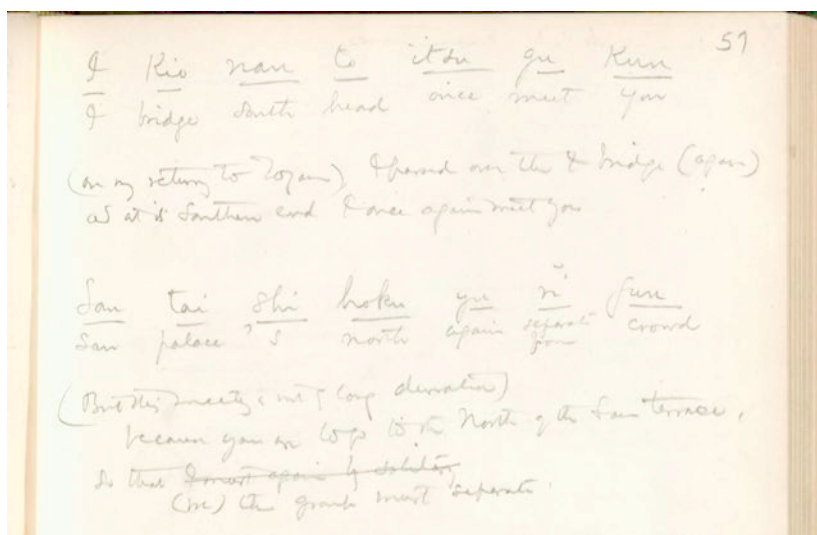 59
I Kio nan to itsu gu Kun
I bridge South head once meet you
(on my return to Rakuyo), I passed over the I bridge (again)
at its Southern end I once again meet you
San tai Shi hoku yu ri Gun
San palace 's north again separate from crowd
(But this meeting is not of long duration)
because you are to go to the North of the San terrace,
so that I must again be solitary
(we) the group must separate.